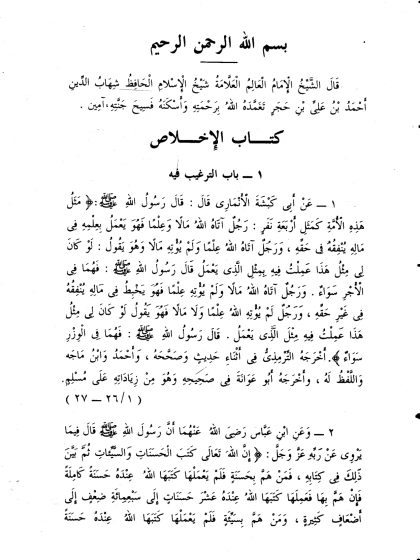 بسم الله الرحمن الرحيم
قَالَ الشَّيْخُ الإِمَامُ العَالِمُ العَلَّامَةُ شَيْخُ الإِسْلَامِ الْحَافِظُ شِهَابُ الدِّينِ
أَحْمَدُ بْنُ عَلِيِّ بْنِ حَجَرٍ تَغَمَّدَهُ اللهُ بِرَحْمَتِهِ وَأَسْكَنَهُ فَسِيحَ جَنَّتِهِ،آمِين .
كتـــاب الإخـــلاص
١ – باب الترغيب فيه
١ – عَنْ أَبِى كَبْشَةَ الأَنْمَارِى قَالَ : قَالَ رَسُولُ اللهِ ﷺ :﴿ مَثَلُ
هَذِهِ الأُمَّةِ كَمَثَلِ أَرْبَعَةِ نَفَرٍ : رَجُلٌ آتَاهُ اللهُ مَالًا وَعِلْمًا فَهُوَ يَعْمَلُ بِعِلْمِهِ فِى
مَالِهِ يُنْفِقُهُ فِى حَقِّهِ ، وَرَجُلٌ آتَاهُ اللهُ عِلْمًا وَلَمْ يُؤْتِهِ مَالًا وَهُوَ يَقُولُ : لَوْ كَانَ
لِى مِثْلُ هَذَا عَمِلْتُ فِيهِ بِمِثْلِ الَّذِى يَعْمَلُ قَالَ رَسُولُ اللهِ ﷺ : فَهُمَا فِى
الأَجْرِ سَوَاءٌ . وَرَجُلٌ آتَاهُ اللهُ مَالًا وَلَمْ يُؤْتِهِ عِلْمًا فَهُوَ يَخْبِطُ فِى مَالِهِ يُنْفِقُهُ
فِى غَيْرِ حَقِّهِ ، وَرَجُلٌ لَمْ يُؤْتِهِ اللهُ عِلْمًا وَلَا مَالًا فَهُوَ يَقُولُ لَوْ كَانَ لِى مِثْلُ
هَذَا عَمِلْتُ فِيهِ مِثْلَ الَّذِى يَعْمَلُ . قَالَ رَسُولُ اللهِ ﷺ : فَهُمَا فِى الْوِزْرِ
سَوَاءٌ ﴾.أَخْرَجَهُ التِّرْمِذِىُّ فِى أَثْنَاءِ حَدِيثٍ وَصَحَّحَهُ ، وَأَحْمَدُ وَابْنُ مَاجَه
وَاللَّفْظُ لَهُ ، وَأَخْرَجَهُ أَبُو عَوَانَةَ فِى صَحِيحِهِ وَهُوَ مِنْ زِيَادَاتِهِ عَلَى مُسْلِمٍ.
(٢٦/١ – ٢٧)
٢ – وَعَنِ ابْنِ عَبَّاسٍ رَضِىَ اللهُ عَنْهُمَا أَنَّ رَسُولَ اللهِ ﷺ قَالَ فِيمَا
يَرْوِى عَنْ رَبِّهِ عَزَّ وَجَلَّ :﴿ إِنَّ اللهَ تَعَالَى كَتَبَ الْحَسَنَاتِ وَالسَّيِّئَاتِ ثُمَّ بَيَّنَ
ذَلِكَ فِى كِتَابِهِ ، فَمَنْ هَمَّ بِحَسَنَةٍ فَلَمْ يَعْمَلْهَا كَتَبَهَا اللهُ عِنْدَهُ حَسَنَةً كَامِلَةً
فَإِنْ هَمَّ بِهَا فَعَمِلَهَا كَتَبَهَا اللهُ عِنْدَهُ عَشْرَ حَسَنَاتٍ إِلَى سَبْعِمِائَةِ ضِعْفٍ إِلَى
أَضْعَافٍ كَثِيرَةٍ ، وَمَنْ هَمَّ بِسَيِّئَةٍ فَلَمْ يَعْمَلْهَا كَتَبَهَا اللهُ عِنْدَهُ حَسَنَةً